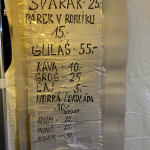 SPAŘÁK - 25
PÁREK V ROHLÍKU
15.-
GULÁŠ - 55.-
KÁVA - 10.-
GROG - 25
ČAJ - 5.-
HORKÁ ČOKOLÁDA
10.-
RUM - 25
PUNČ - 25